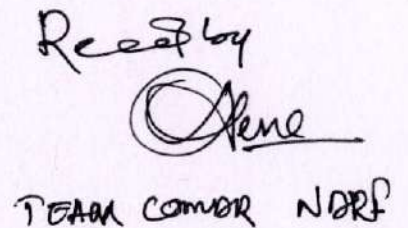 Recd by
TEAM COMDR NDRF